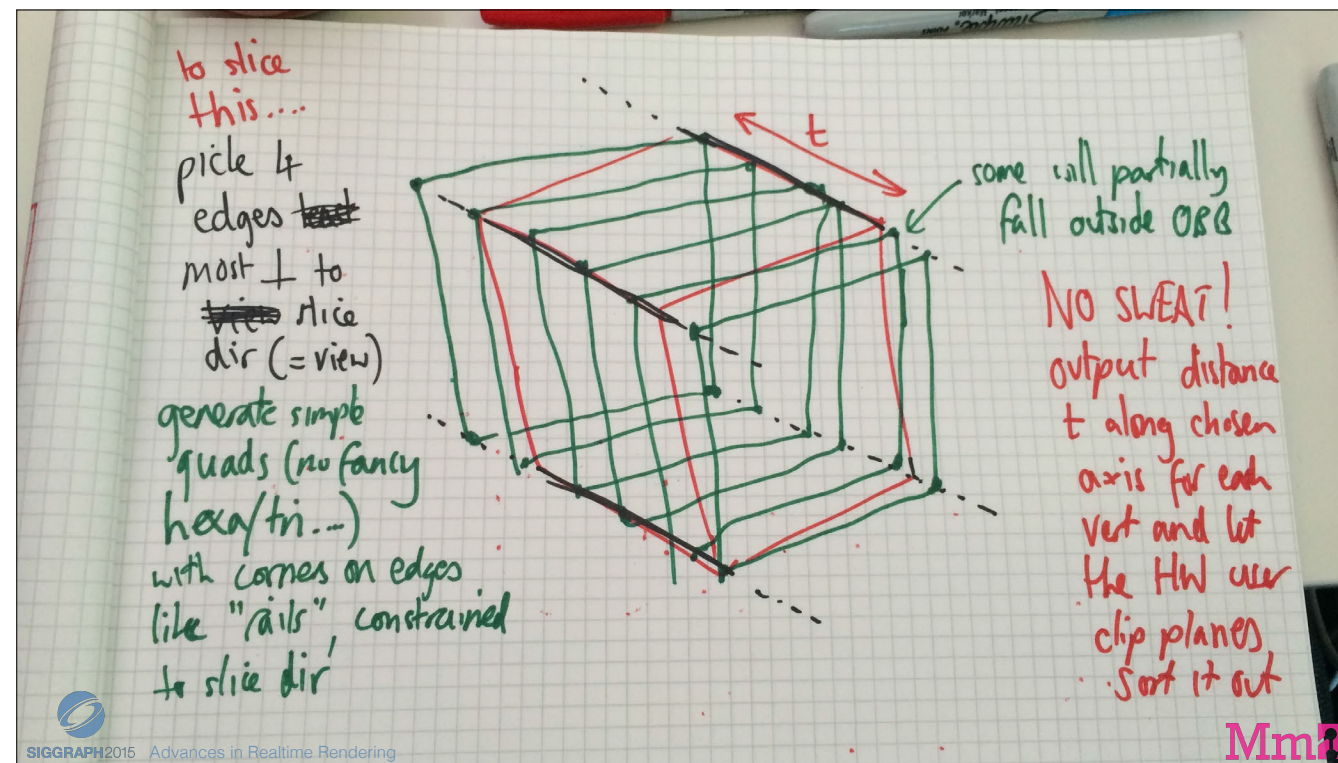 to slice
this....
pick 4
edges
most ⊥ to
view slice
dir (= view)
generate simple
quads (no fancy
hexa/tri...)
with corners on edges
like "rails", constrained
to slice dir
t
some will partially
fall outside OBB
NO SWEAT!
output distance
t along chosen
axis for each
vert and let
the HW user
clip planes
sort it out
SIGGRAPH2015 Advances in Realtime Rendering
Mm